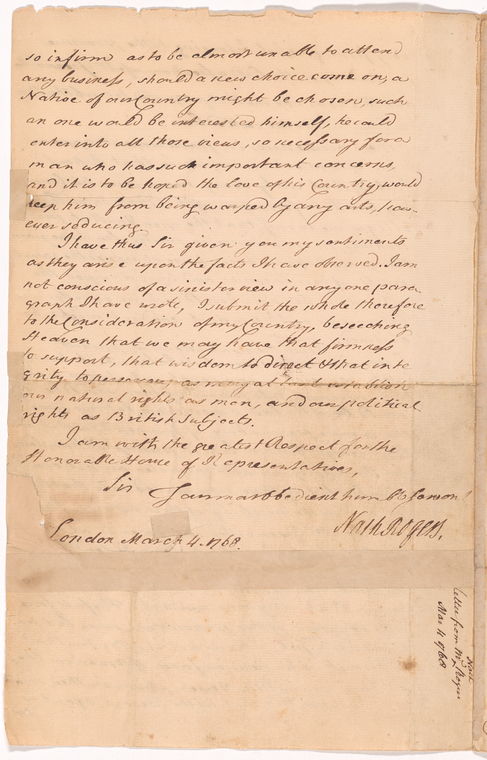 so infirm as to be almost unable to attend
any business, should a new choice come on, a
Native of our Country might be chosen, such
an one would be interested himself, he could
enter into all those views, so necessary for a
man who has such important concerns,
and it is to be hoped the love of his Country, would
keep him from being warped by any arts, how-
ever seducing.
I have thus Sir given you my sentiments
as they arise upon the facts I have observed. I am
not conscious of a sinister view in any one para
graph I have wrote, I submit the whole therefore
to the Consideration of my Country, beseeching
Heaven that we may have that firmness
to support, that wisdom to direct & that inte
grity to persevere as may at
our natural rights as men, and our political
rights as British Subjects.
I am with the greatest Respect for the
Honorable House of Representatives,
Sir
Your most obedient hum
Nath Rogers.
London March 4. 1768.
Nath
Letter from Mr Rogers
Mar 4 1768